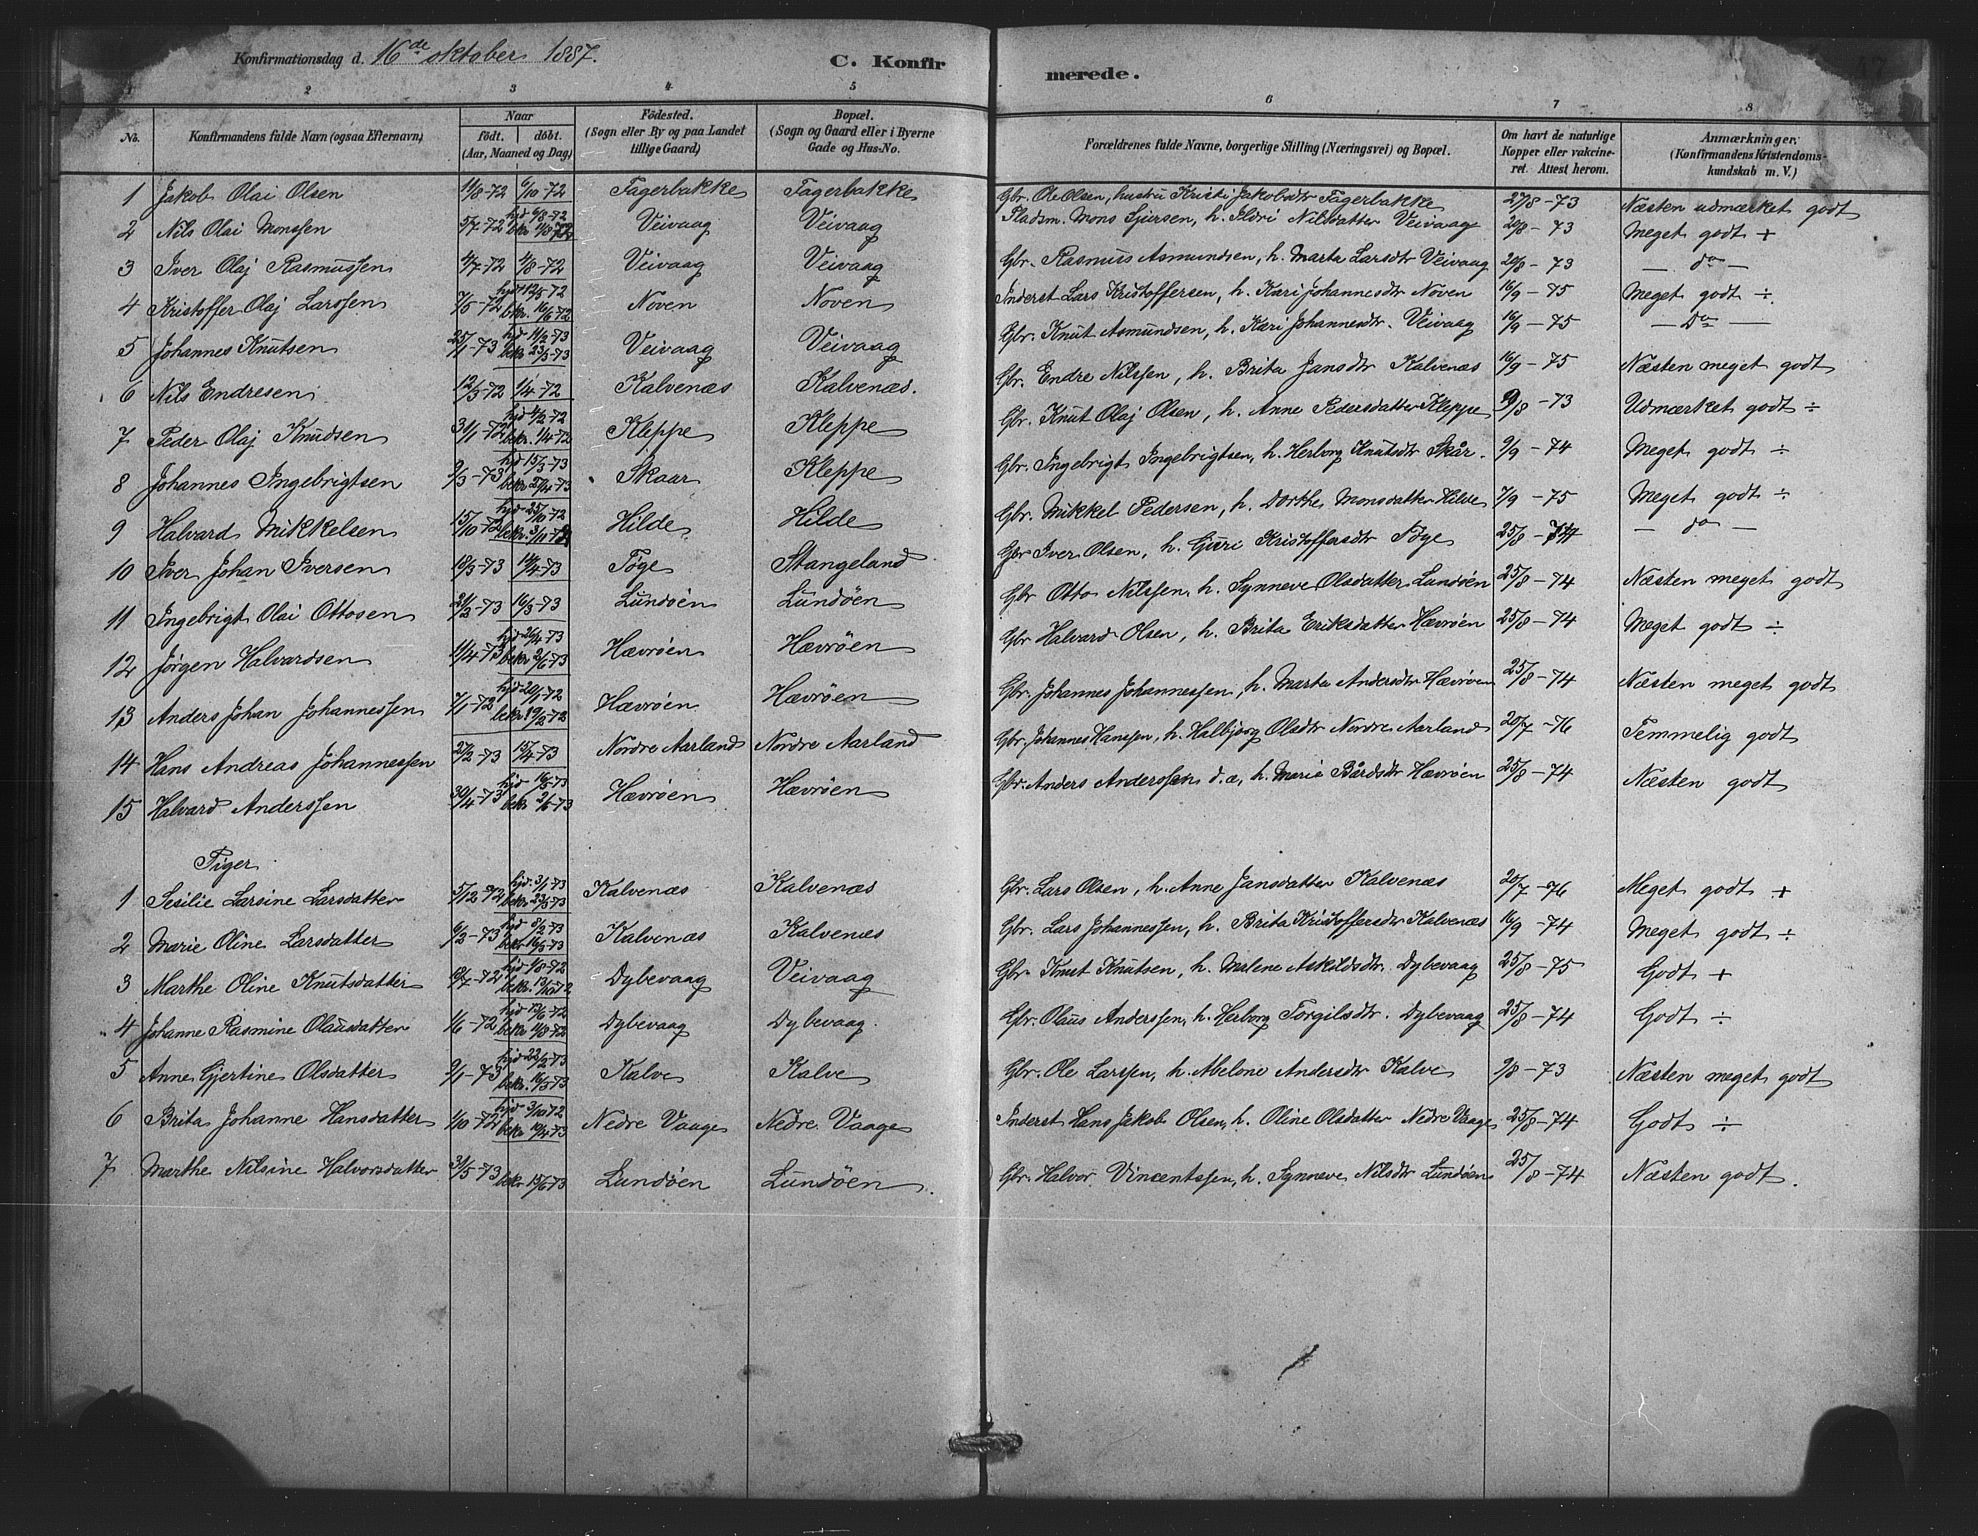 Konfirmationsdag d. 16de oktober 1887.
C. Konfirmerede.
1 2 3 4 5 6 7 8
No. | Konfirmandens fulde Navn (ogsaa Efternavn) | Naar født. døbt. (Aar, Maaned og Dag) | Födested. (Sogn eller By og paa Landet tillige Gaard) | Bopæl. (Sogn og Gaard eller i Byerne Gade og Hus-No. | Forældrenes fulde Navne, borgerlige Stilling (Næringsvei) og Bopæl. | Om havt de naturlige Kopper eller vakcineret. Attest herom. | Anmærkninger: (Konfirmandens Kristendomskundskab m. V.)
1 Jakob Olai Olsen 19/8-72 6/10-72 Fagerbakke Fagerbakke Gbr. Ole Olsen, hustru Kristi Jakobsdtr Fagerbakke 27/8-73 Næsten udmærket godt
2 Nils Olai Monssen 5/7-72 hjd 6/8-72 bekr. Veivaag Veivaag Pladsm. Mons Sjursen, h. Ildri Nilsdatter Veivaag 20/8-73 Meget godt +
3 Iver Olaj Rasmussen 4/7-72 4/8-72 Veivaag Veivaag Gbr. Rasmus Asmundsen, h. Marta Larsdtr Veivaag 20/8-73 - do -
4 Kristoffer Olaj Larssen 7/5-72 hjd 12/5-72 bekr. 16/6-72 Noven Noven Inderst Lars Kristoffersen, h. Kari Johannesdtr Noven 16/9-75 Meget godt ÷
5 Johannes Knutsen 25/1-73 hjd 11/2-73 bekr 23/3-73 Veivaag Veivaag Gbr. Knut Asmundsen, h. Kari Johannesdtr. Veivaag 16/9-75 - Do -
6 Nils Endresen 12/3-72 1/4-72 Kalvenæs Kalvenæs. Gbr. Endre Nilssen, h. Brita Jansdtr Kalvenæs 16/9-75 Næsten meget godt
7 Peder Olaj Knudsen 31/1-72 hjd 4/2-72 bekr. 1/4-72 Kleppe Kleppe Gbr. Knut Olaj Olsen, h. Anne Pedersdatter Kleppe 9/8-73 Udmærket godt ÷
8 Johannes Ingebrigtsen 9/3-73 hjd 15/3-73 bekr 27/4-73 Skaar Kleppe Gbr. Ingebrigt Ingebrigtsen, h. Herborg Knutsdtr Skår. 9/9-74 Meget godt ÷
9 Halvard Mikkelsen 15/10-72 hjd 25/10-72 bekr. Hilde Hilde Gbr. Mikkel Pedersen, h. Dorthe Monsdatter Hilde 7/9-75 Meget godt ÷
10 Iver Johan Iversen 10/3-73 14/4-73 Töge Stangeland Gbr Iver Olsen, h. Guri Kristoffersdtr Töge 25/8-74 - do -
11 Ingebrigt Olai Ottosen 21/2-73 16/3-73 Lundöen Lundöen Gbr Otto Nilssen, h. Synneve Olsdatter Lundöen 25/8-74 Næsten meget godt
12 Jørgen Halvardsen 11/4-73 hjd 26/4-73 bekr 2/6-73 Hævröen Hævröen Gbr Halvard Olsen, h. Brita Eriksdatter Hævröen 25/8-74 Meget godt ÷
13 Anders Johan Johannessen 7/1-72 hjd 20/1-72 bekr 19/2-72 Hævröen Hævröen Gbr. Johannes Johannessen, h. Marta Andersdtr Hævröen 25/8-74 Næsten meget godt
14 Hans Andreas Johannessen 27/2-73 15/4-73 Nordre Aarland Nordre Aarland Gbr. Johannes Hanssen, h. Halbjørg Olsdtr Nordre Aarland 20/7-76 Temmelig godt
15 Halvard Anderssen 30/4-73 hjd 16/5-73 bekr 2/6-73 Hævröen Hævröen Gbr. Anders Anderssen d.æ, h. Maria Bårdsdtr Hævröen 25/8-74 Næsten godt
Piger
1 Sesilie Larsine Larsdatter 5/12-72 hjd. 3/1-73 bekr 23/3-73 Kalvenæs Kalvenæs Gbr. Lars Olsen, h. Anne Jansdatter Kalvenæs 20/7-76 Meget godt +
2 Marie Oline Larsdatter 6/2-73 hjd 8/2-73 bekr. 16/3-73 Kalvenæs Kalvenæs Gbr. Lars Johannessen, h. Brita Kristoffersdtr Kalvenæs 16/9-74 Meget godt ÷
3 Marthe Oline Knutsdatter 18/7-72 hjd 1/8-72 bekr. 13/10-72 Dybevaag Veivaag Gbr Knut Knutsen, h. Malene Askildsdtr. Dybevaag 25/8-75 Godt +
4 Johanne Rasmine Olausdatter 1/6-72 hjd 12/6-72 bekr 11/8-72 Dybevaag Dybevaag. Gbr. Olaus Anderssen, h. Herborg Torgilsdtr. Dybevaag 25/8-74 Godt ÷
5 Anne Gjertine Olsdatter 9/1-73 hjd 22/2-73 bekr. 16/3-73 Kalve Kalve Gbr. Ole Larssen, h. Abelone Andersdtr Kalve 9/8-73 Næsten meget godt
6 Brita Johanne Hansdatter 1/10-72 hjd 3/10-72 bekr 14/4-73 Nedre Vaage Nedre Vaage Inderst Hans Jakob Olsen, h. Oline Olsdatter Nedre Vaage 25/8-74 Godt ÷
7 Marthe Nilsine Halvorsdatter 31/5-73 bekr 15/6-73 Lundöen Lundöen. Gbr. Halvor Vincentssen, h. Synneve Nilsdtr Lundöen 25/8-74 Næsten godt.